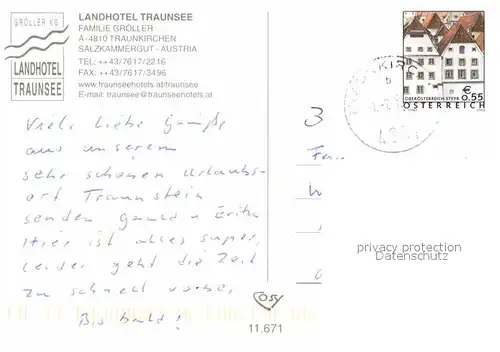 GRÖLLER KG
LANDHOTEL
TRAUNSEE
LANDHOTEL TRAUNSEE
FAMILIE GRÖLLER
A-4810 TRAUNKIRCHEN
SALZKAMMERGUT - AUSTRIA
TEL: ++43/7617/2216
FAX: ++43/7617/3496
www.traunseehotels.at/traunsee
E-mail: traunsee@traunseehotels.at
Viele liebe Grüße
aus unserem
sehr schönen Urlaubs-
ort Traunstein
senden u Erika
Hier ist alles super,
leider geht die Zeit
zu schnell vorbei,
Bis bald!
11.671
€ 0.55
OBERÖSTERREICH STEYR
ÖSTERREICH
privacy protection
Datenschutz